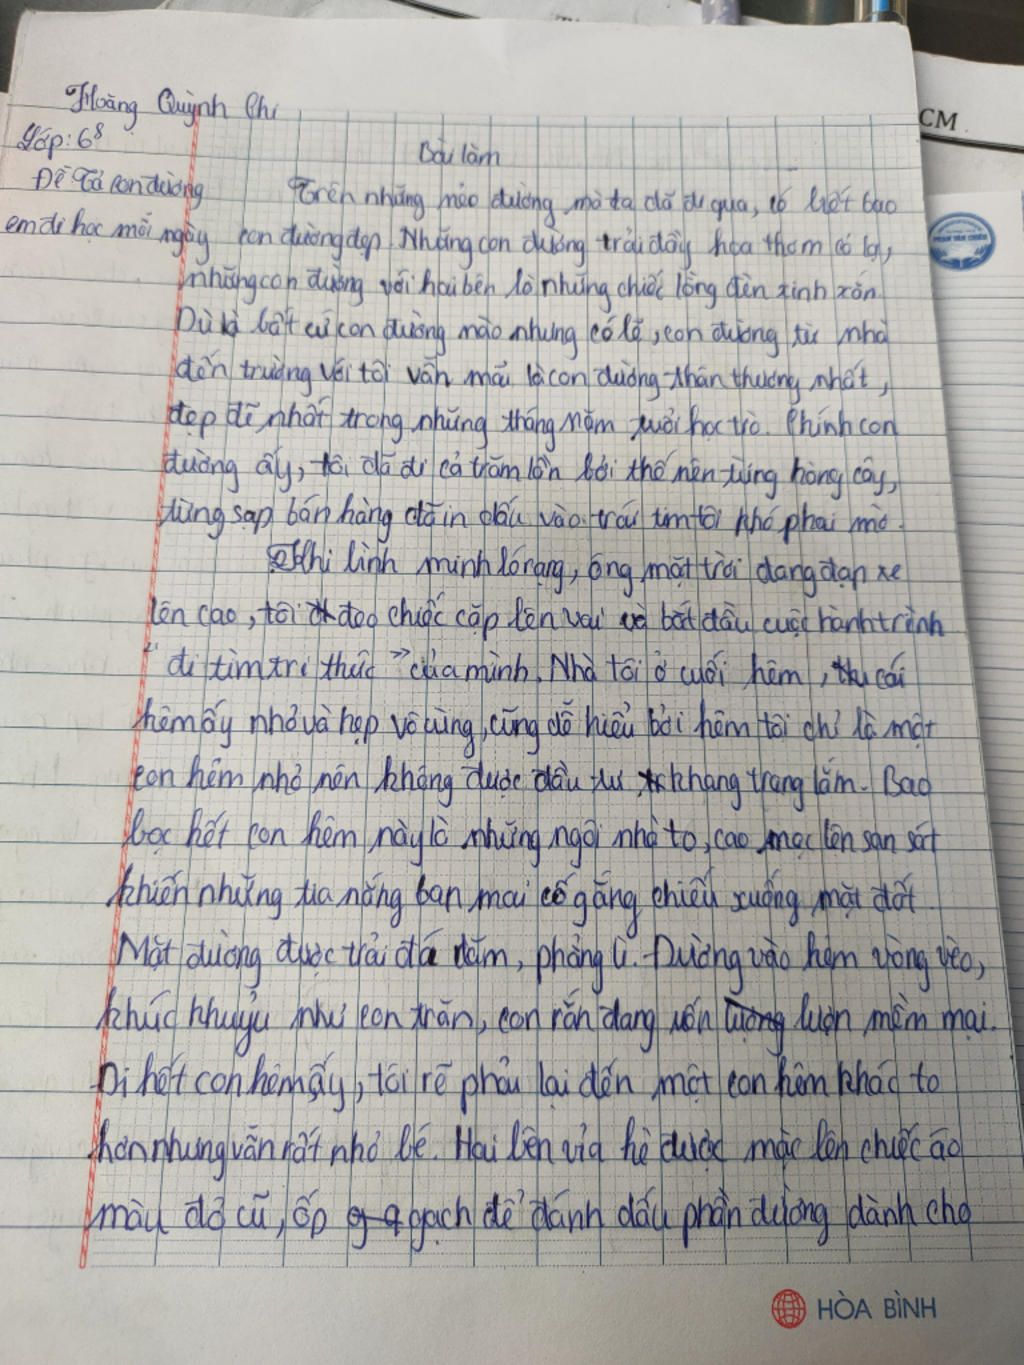 CM
Hoàng Quỳnh Chi
Lớp: 6⁸
Bài làm
Đề Tả con đường
em đi học mỗi ngày
Trên những nẻo đường mà ta đã đi qua, có biết bao
con đường đẹp. Những con đường trải đầy hoa thơm cỏ lạ,
những con đường với hai bên là những chiếc lồng đèn xinh xắn.
Dù là bất cứ con đường nào nhưng có lẽ, con đường từ nhà
đến trường với tôi vẫn mãi là con đường thân thương nhất,
đẹp đẽ nhất trong những tháng năm tuổi học trò. Chính con
đường ấy, tôi đã đi cả trăm lần bởi thế nên từng hàng cây,
từng sạp bán hàng đã in dấu vào trái tim tôi khó phai mờ.
Khi bình minh ló rạng, ông mặt trời đang đạp xe
lên cao, tôi đeo chiếc cặp lên vai và bắt đầu cuộc hành trình
" đi tìm tri thức " của mình. Nhà tôi ở cuối hẻm, cái
hẻm ấy nhỏ và hẹp vô cùng, cũng dễ hiểu bởi hẻm tôi chỉ là một
con hẻm nhỏ nên không được đầu tư khang trang lắm. Bao
bọc hết con hẻm này là những ngôi nhà to, cao mọc lên san sát
khiến những tia nắng ban mai cố gắng chiếu xuống mặt đất.
Mặt đường được trải đá dăm, phẳng lì. Đường vào hẻm vòng vèo,
khúc khuỷu như con trăn, con rắn đang uốn lượn mềm mại.
Đi hết con hẻm ấy, tôi rẽ phải lại đến một con hẻm khác to
hơn nhưng vẫn rất nhỏ bé. Hai bên vỉa hè được mặc lên chiếc áo
màu đỏ cũ, ốp gạch để đánh dấu phần đường dành cho
HÒA BÌNH